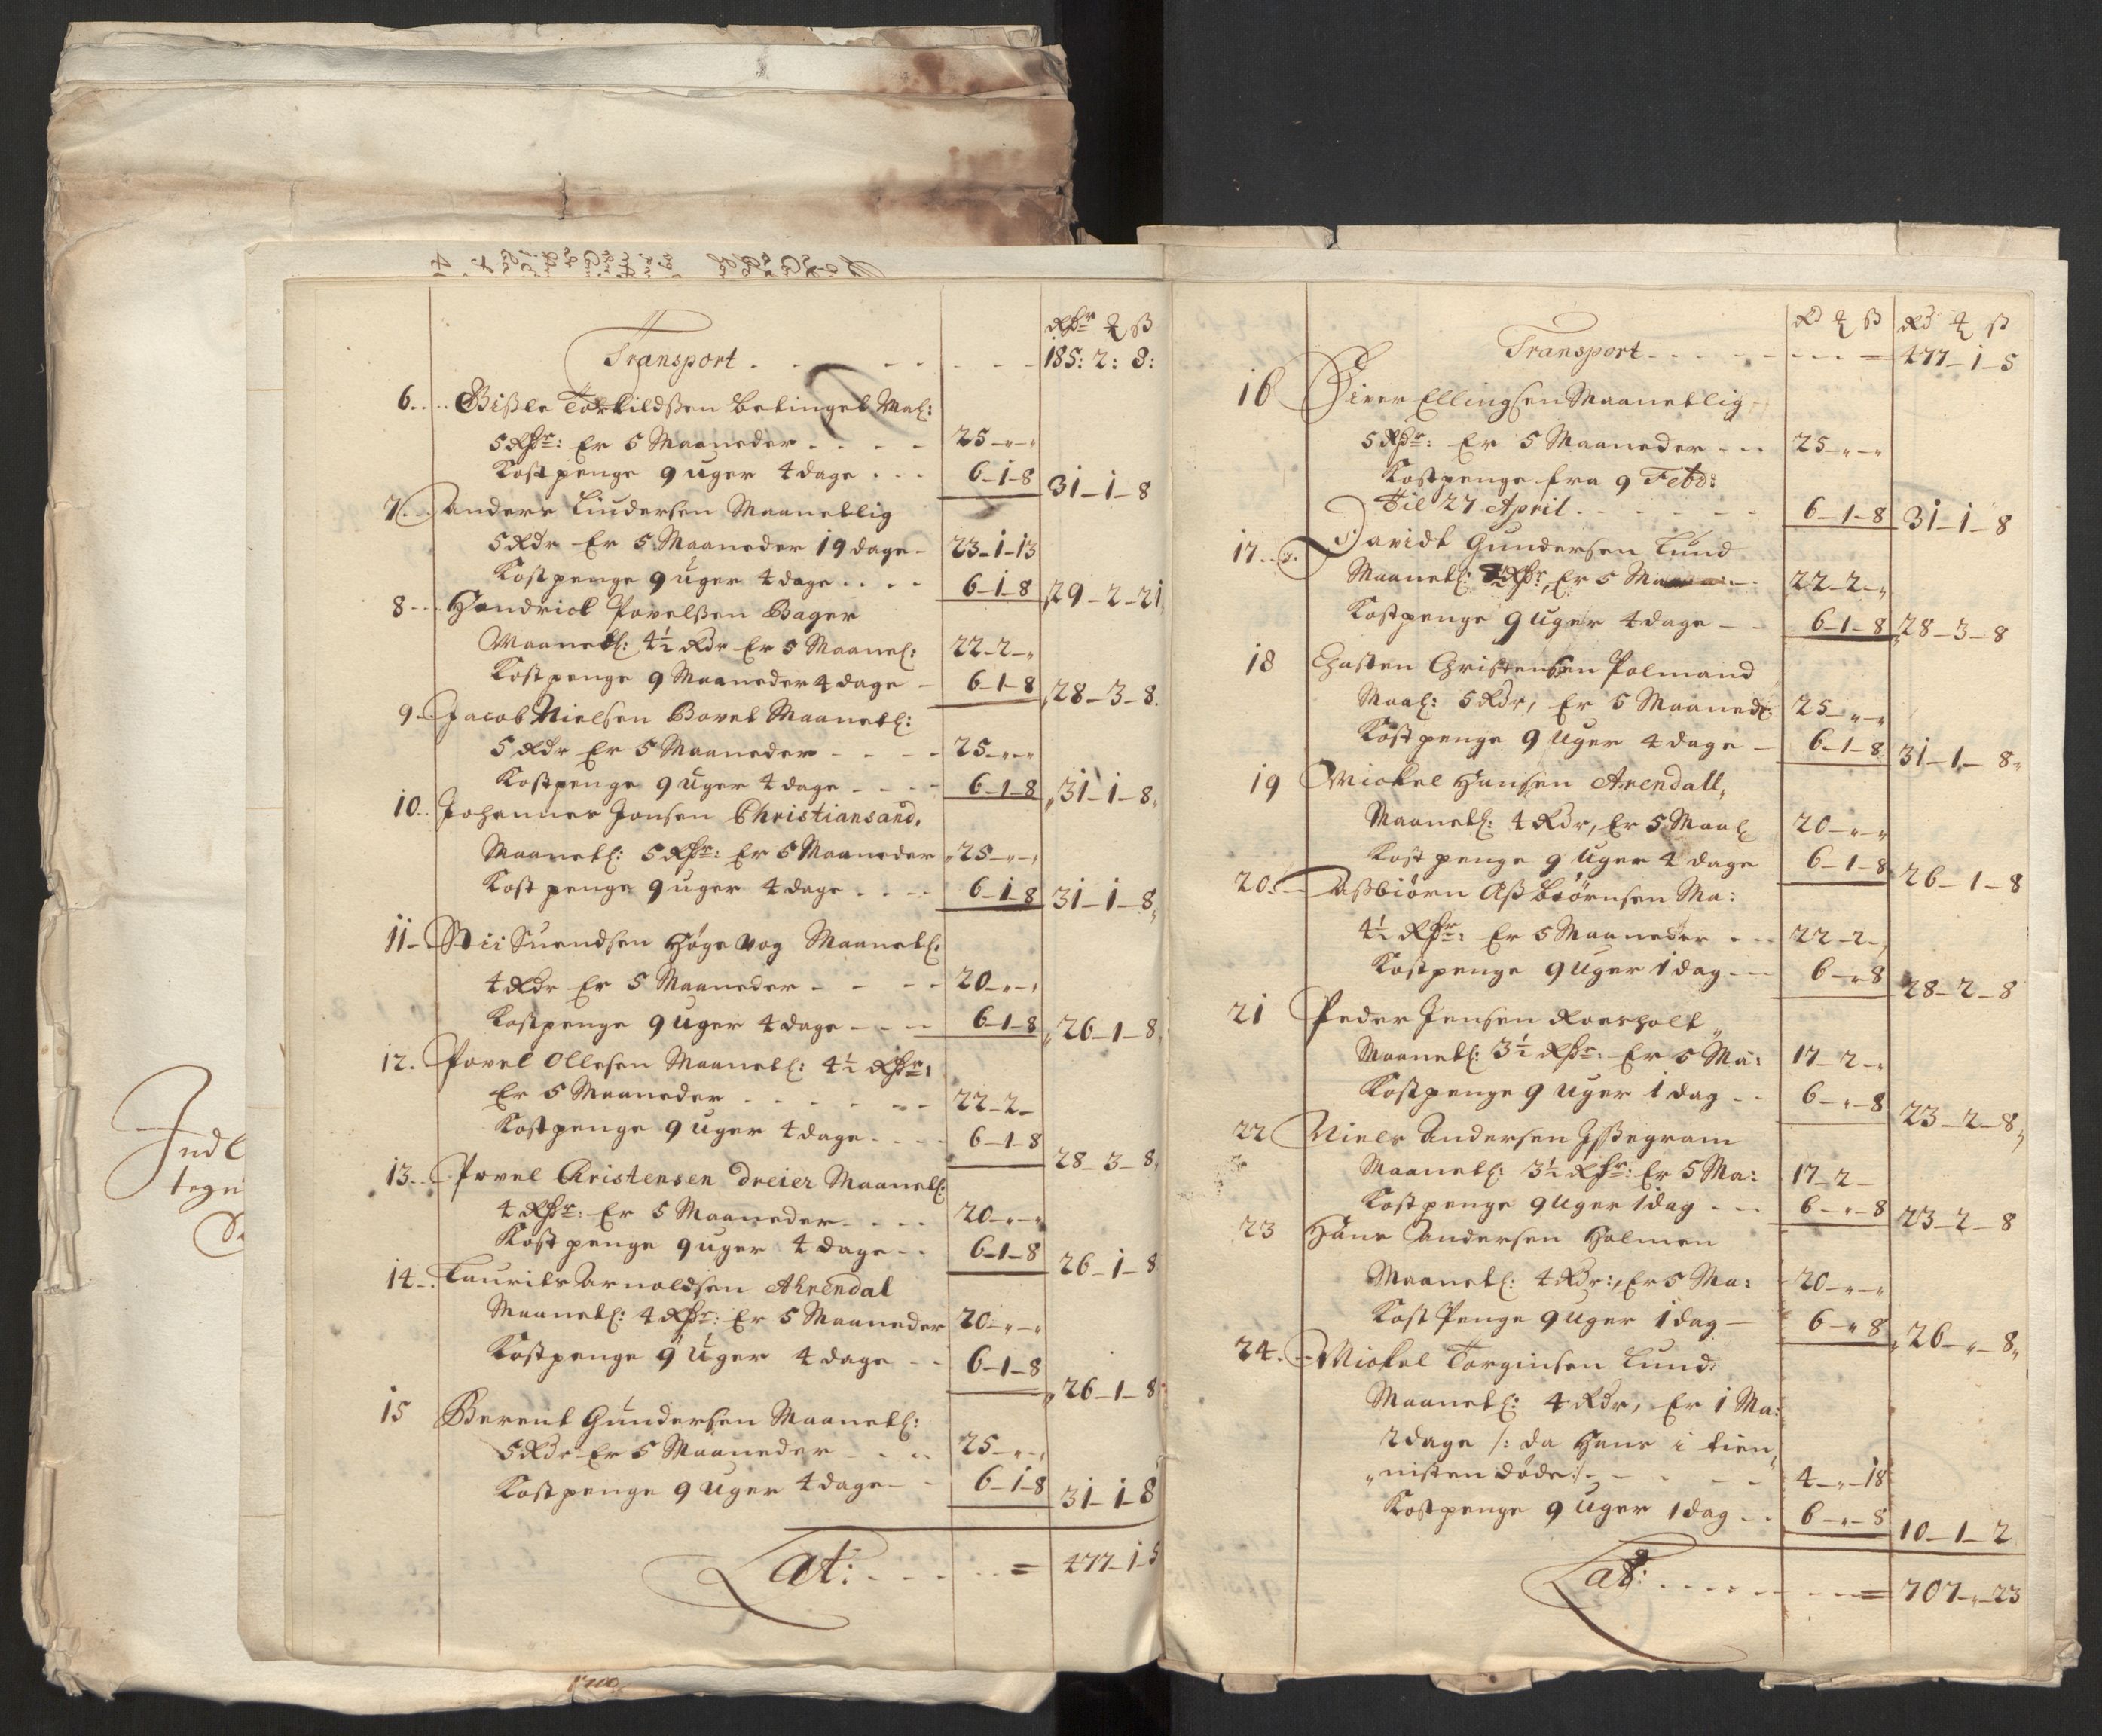 Rdr ꝣ ß
Transport . . . . . . 185: 2: 8:
6. Gisle Torkildssen betinget Ma:
5 Rdr: Er 5 Maaneder . . . . 25-"-"
Kostpenge 9 uger 4 dage . . . 6-1-8 31-1-8
7. Anders Maanetlig
5 Rdr Er 5 Maaneder 19 dage - 23-1-13
Kostpenge 9 uger 4 dage . . . . 6-1-8 29-2-21
8. Hendrick Povelssen Bager
Maanetl: 4½ Rdr Er 5 Maane: 22-2-"
Kostpenge 9 Maaneder 4 dage - 6-1-8 28-3-8
9. Jacob Nielsen Bovet Maanetl:
5 Rdr Er 5 Maaneder - - - - 25-"-"
Kostpenge 9 uger 4 dage - - - 6-1-8 31-1-8
10. Johannes Jonsen Christiansand.
Maanetl: 5 Rdr: Er 5 Maaneder 25-"-"
Kost penge 9 uger 4 dage . . . . 6-1-8 31-1-8
11. Suendsen Høgevog Maanetl:
4 Rdr Er 5 Maaneder - - - - 20-"-"
Kostpenge 9 uger 4 dage - - - 6-1-8 26-1-8
12. Povel Ollesen Maanetl: 4½ Rdr:
Er 5 Maaneder - - - - - - 22-2-
Kostpenge 9 uger 4 dage - - - 6-1-8 28-3-8
13. Povel Christensen Dreier Maanetl:
4 Rdr: Er 5 Maaneder - - - . 20-"-"
Kost penge 9 uger 4 dage - - 6-1-8 26-1-8
14. Laurits Arnoldsen Ahrendal
Maanetl: 4 Rdr: Er 5 Maaneder 20-"-"
Kostpenge 9 uger 4 dage - - 6-1-8 26-1-8
15 Berent Gundersen Maanetl:
5 Rdr Er 5 Maaneder - - - 25-"-"
Kostpenge 9 uger 4 dage - - 6-1-8 31-1-8
Lat: . . . . . . = 477-1-5
Rd ꝣ ß Rd ꝣ ß
Transport - - - - - - - = 477-1-5
16 Siver Ellingsen Maanetlig -
5 Rdr: Er 5 Maaneder - - - 25-"-"
Kostpenge fra 9 Febr:
til 27 April . - - - - - 6-1-8 31-1-8
17. Davidt Gundersen Lund
Maanetl: Rdr, Er 5 22-2-"
Kostpenge 9 uger 4 dage - - 6-1-8 28-3-8
18 Christensen Polmand
Maal: 5 Rdr, Er 5 Maaned: 25-"-"
Kostpenge 9 uger 4 dage - 6-1-8 31-1-8
19 Mickel Hansen Arendall,
Maanetl: 4 Rdr, Er 5 Maal 20-"-"
Kost penge 9 uger 4 dage 6-1-8 26-1-8
20. Assbiørn Assbiørnsen Ma:
4½ Rdr: Er 5 Maaneder - - - 22-2-,
Kostpenge 9 uger 1 dag - - - 6-"-8 28-2-8
21 Peder Jensen Roersholt
Maanetl: 3½ Rdr: Er 5 Ma: 17-2-"
Kostpenge 9 uger 1 dag - - 6-"-8 23-2-8
22 Niels Andersen Issegram
Maanetl: 3½ Rdr: Er 5 Ma: 17-2-
Kostpenge 9 uger 1 dag - - - 6-"-8 23-2-8
23 Hans Andersen Holmen
Maanetl: 4 Rdr:, Er 5 Ma: 20-"-"
Kost Penge 9 uger 1 dag - 6-"-8 26-"-8
24. Mickel Torginsen Lund:
Maanetl: 4 Rdr, Er 1 Ma:
2 dage /: da Hans i tien,
"nisten døde :/ - - - - - 4-"-18
Kostpenge 9 uger 1 dag - - 6-"-8 10-1-2
Lat: . . . . . . . = 707-"-23
Indl
tege